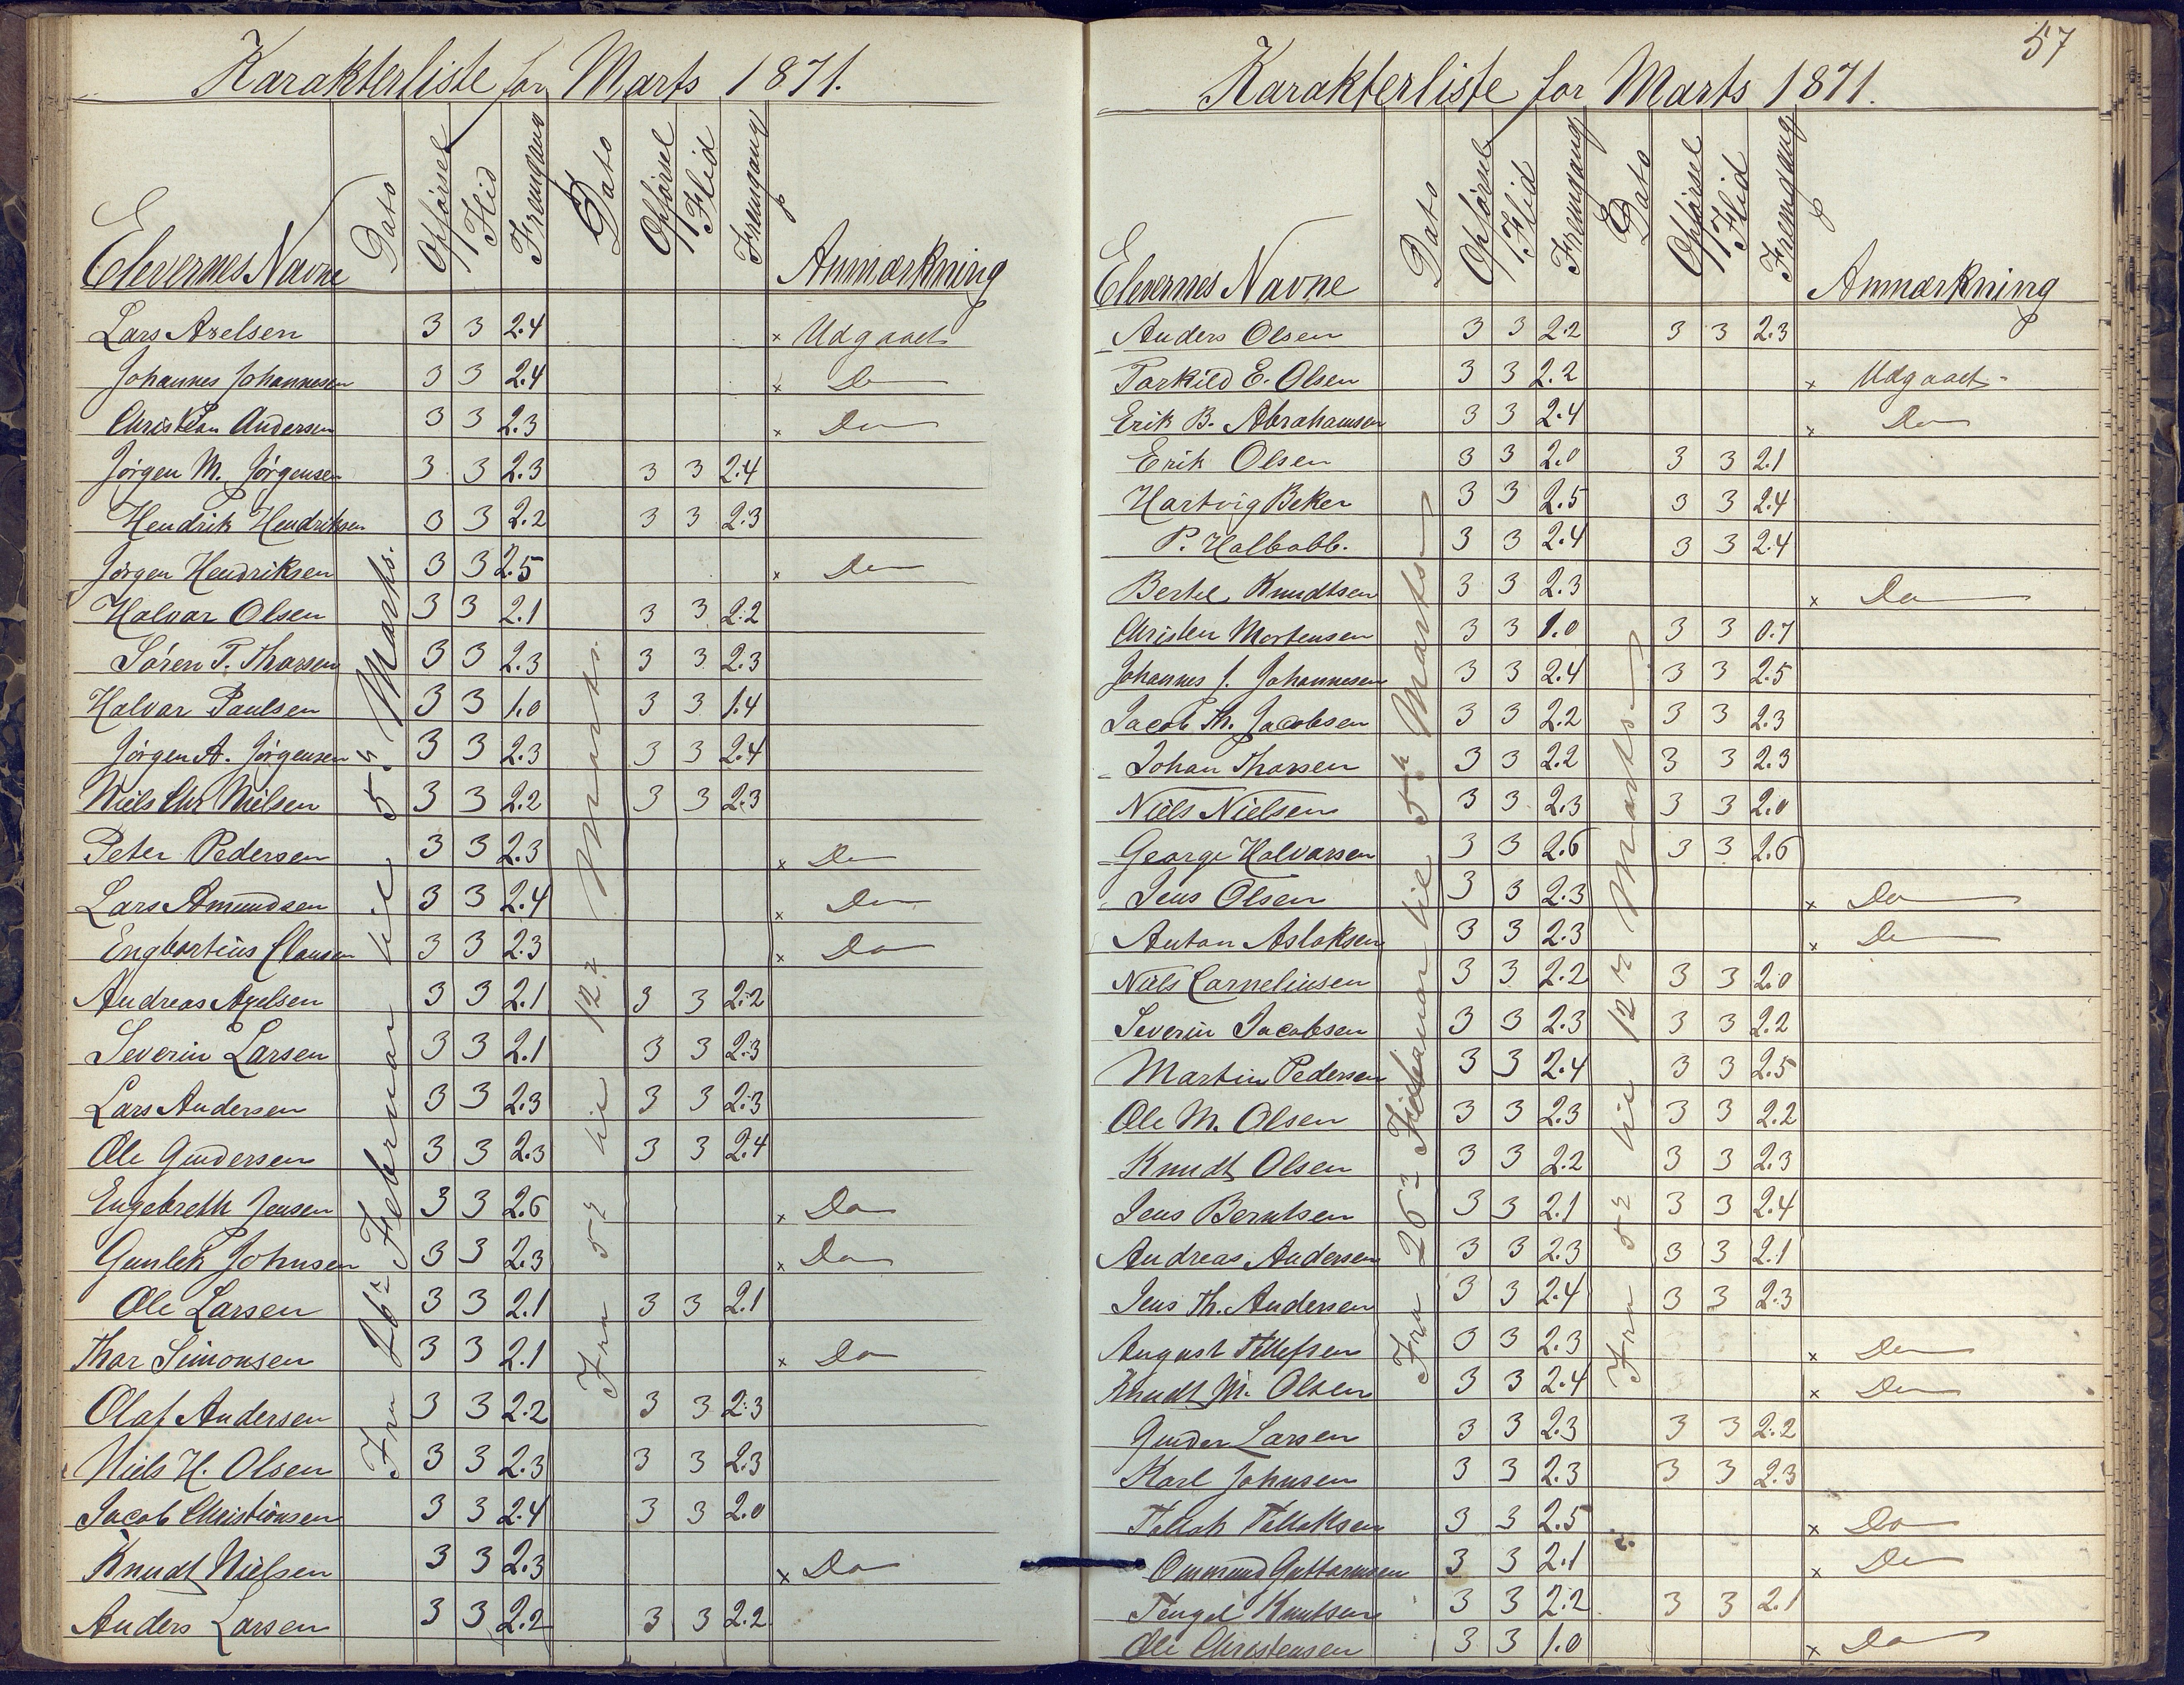 Karakterliste for Marts 1871.
Elevernes Navne Dato Opførsel Flid Fremgang Dato Opførsel Flid Fremgang Anmærkning
Fra 26de Februar til 5te Marts.
Fra 5te til 12te Marts.
Lars Axelsen 3 3 2.4 x Udgaaet
Johannes Johannesen 3 3 2.4 x Do
Christian Andersen 3 3 2.3 x Do
Jørgen M. Jørgensen 3 3 2.3 3 3 2.4
Hendrik Hendriksen 3 3 2.2 3 3 2.3
Jørgen Hendriksen 3 3 2.5 x Do
Halvar Olsen 3 3 2.1 3 3 2.2
Søren T. Thorsen 3 3 2.3 3 3 2.3
Halvar Paulsen 3 3 1.0 3 3 1.4
Jørgen A. Jørgensen 3 3 2.3 3 3 2.4
Niels Chr Nielsen 3 3 2.2 3 3 2.3
Peter Pedersen 3 3 2.3 x Do
Lars Amundsen 3 3 2.4 x Do
Engbartius Clausen 3 3 2.3 x Do
Andreas Axelsen 3 3 2.1 3 3 2.2
Severin Larsen 3 3 2.1 3 3 2.3
Lars Andersen 3 3 2.3 3 3 2.3
Ole Gundersen 3 3 2.3 3 3 2.4
Engebreth Jensen 3 3 2.6 x Do
Gunlek Johnsen 3 3 2.3 x Do
Ole Larsen 3 3 2.1 3 3 2.1
Thor Simonsen 3 3 2.1 x Do
Olaf Andersen 3 3 2.2 3 3 2.3
Niels H. Olsen 3 3 2.3 3 3 2.3
Jacob Christionsen 3 3 2.4 3 3 2.0
Knudt Nielsen 3 3 2.3 x Do
Anders Larsen 3 3 2.2 3 3 2.2
57
Karakterliste for Marts 1871.
Elevernes Navne Dato Opførsel Flid Fremgang Dato Opførsel Flid Fremgang Anmærkning
Fra 26de Februar til 5te Marts
Fra 5te til 12te Marts
Anders Olsen 3 3 2.2 3 3 2.3
Torkild E. Olsen 3 3 2.2 x Udgaaet
Erik B. Abrahamsen 3 3 2.4 x Do
Erik Olsen 3 3 2.0 3 3 2.1
Hartvig Beker 3 3 2.5 3 3 2.4
P. Halbabb. 3 3 2.4 3 3 2.4
Bertel Knudtsen 3 3 2.3 x Do
Christen Mortensen 3 3 1.0 3 3 0.7
Johannes J. Johannesen 3 3 2.4 3 3 2.5
Jacob Th. Jacobsen 3 3 2.2 3 3 2.3
Johan Thorsen 3 3 2.2 3 3 2.3
Niels Nielsen 3 3 2.3 3 3 2.0
George Halvorsen 3 3 2.6 3 3 2.6
Jens Olsen 3 3 2.3 x Do
Anton Aslaksen 3 3 2.3 x Do
Niels Corneliusen 3 3 2.2 3 3 2.0
Severin Jacobsen 3 3 2.3 3 3 2.2
Martin Pedersen 3 3 2.4 3 3 2.5
Ole M. Olsen 3 3 2.3 3 3 2.2
Knudt Olsen 3 3 2.2 3 3 2.3
Jens Berntsen 3 3 2.1 3 3 2.4
Andreas Andersen 3 3 2.3 3 3 2.1
Jens Th. Andersen 3 3 2.4 3 3 2.3
August Tellefsen 3 3 2.3 x Do
Knudt M. Olsen 3 3 2.4 x Do
Gunder Larsen 3 3 2.3 3 3 2.2
Karl Johnsen 3 3 2.3 3 3 2.3
Tellak Tellaksen 3 3 2.5 x Do
Ommund Guttormsen 3 3 2.1 x Do
Tengel Knutsen 3 3 2.2 3 3 2.1
Ole Christensen 3 3 1.0 x Do